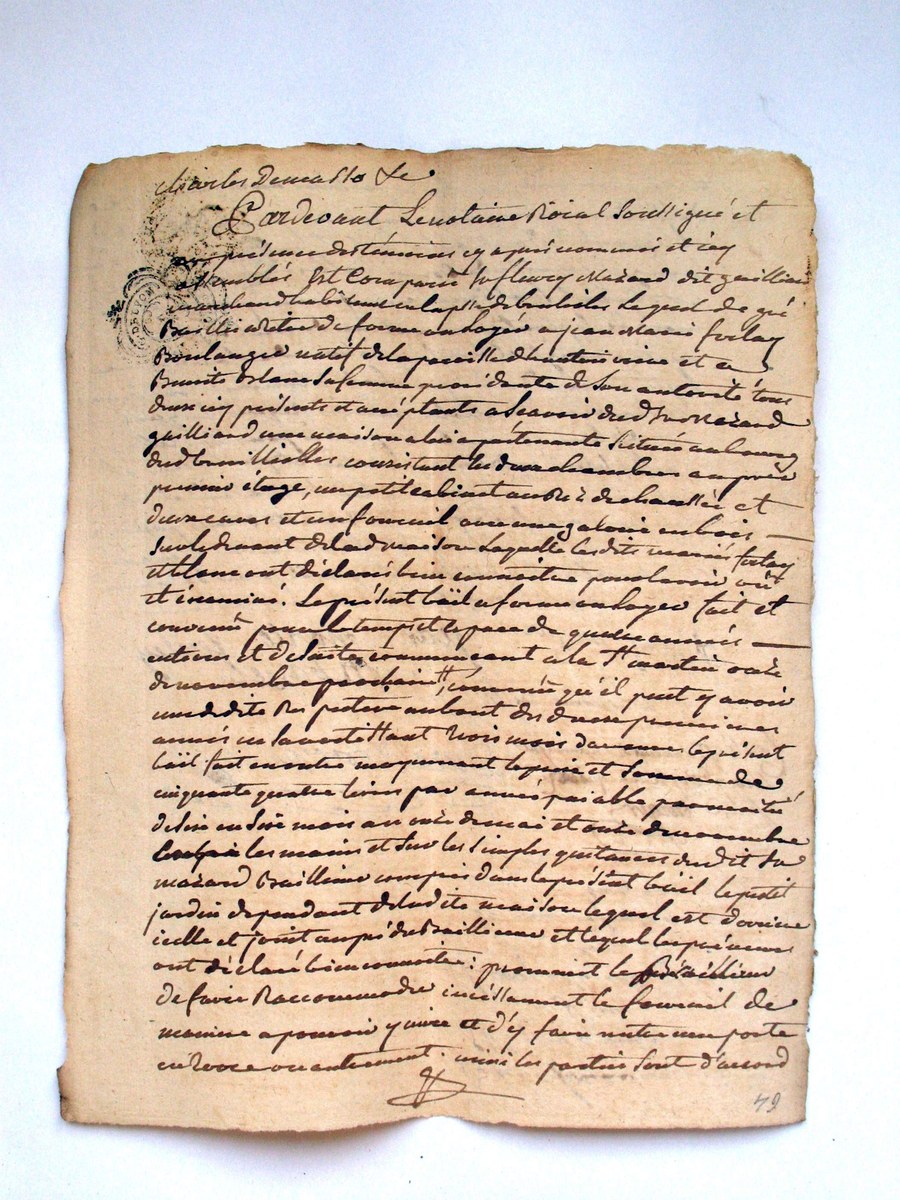 Charles Demasso &c
Pardevant Le notaire Roial Soussigné et
présence des témoins cy après nommés et icy
assemblés Est Comparu Sr fleury Mazard dit gaillard
marchand habitant en la psse de Lequel de gré
Baille a titre de ferme ou loyer a jean Marie forlay
Boulanger natif de la paroisse et a
Benoite Blanc sa femme procédente de Son autorité tous
deux icy présents et acceptants a Scavoir dud Sr Mazard
gailliard une maison a lui apartenante Scituée au bourg
dud brullioles consistant les deux chambres au près
premier étage, un petit cabinet au Rez de chaussée et
deux caves et un fournil avec une galerie en bois
Sur le devant de lad maison Laquelle lesdits mariés forlay
et blanc ont déclarés bien connoitre pour lavoir vüe
et éxaminé. Le présent bail a ferme ou loyer fait et
convenu pour le temps et espace de quatre années
entières et de suite commencant a la St martin onze
de novembre prochain, convenu qu'il peut y avoir
une dedite Respective au bout des deux premieres
années en Savertissant trois mois davance le présent
bail fait en outre moyennant le prix et Somme de
cinquante quatre livres par année paiable par moitié
de Six en Six mois au onze de mai et onze de novembre
les mains et Sur les Simples quitances dudit Sr
mazard Baillieur compris dans le présent bail le petit
jardin dependant de ladite maison lequel est derriere
icelle et joint au pré du Baillieur et lequel les preneurs
ont déclaré bien connoitre : promet le Baillieur
de faire Raccommoder incessament le fournil de
maniere a pouvoir y cuire et d'y faire mettre une porte
ou autrement. ainsi les parties Sont d'accord
79
DE LYON